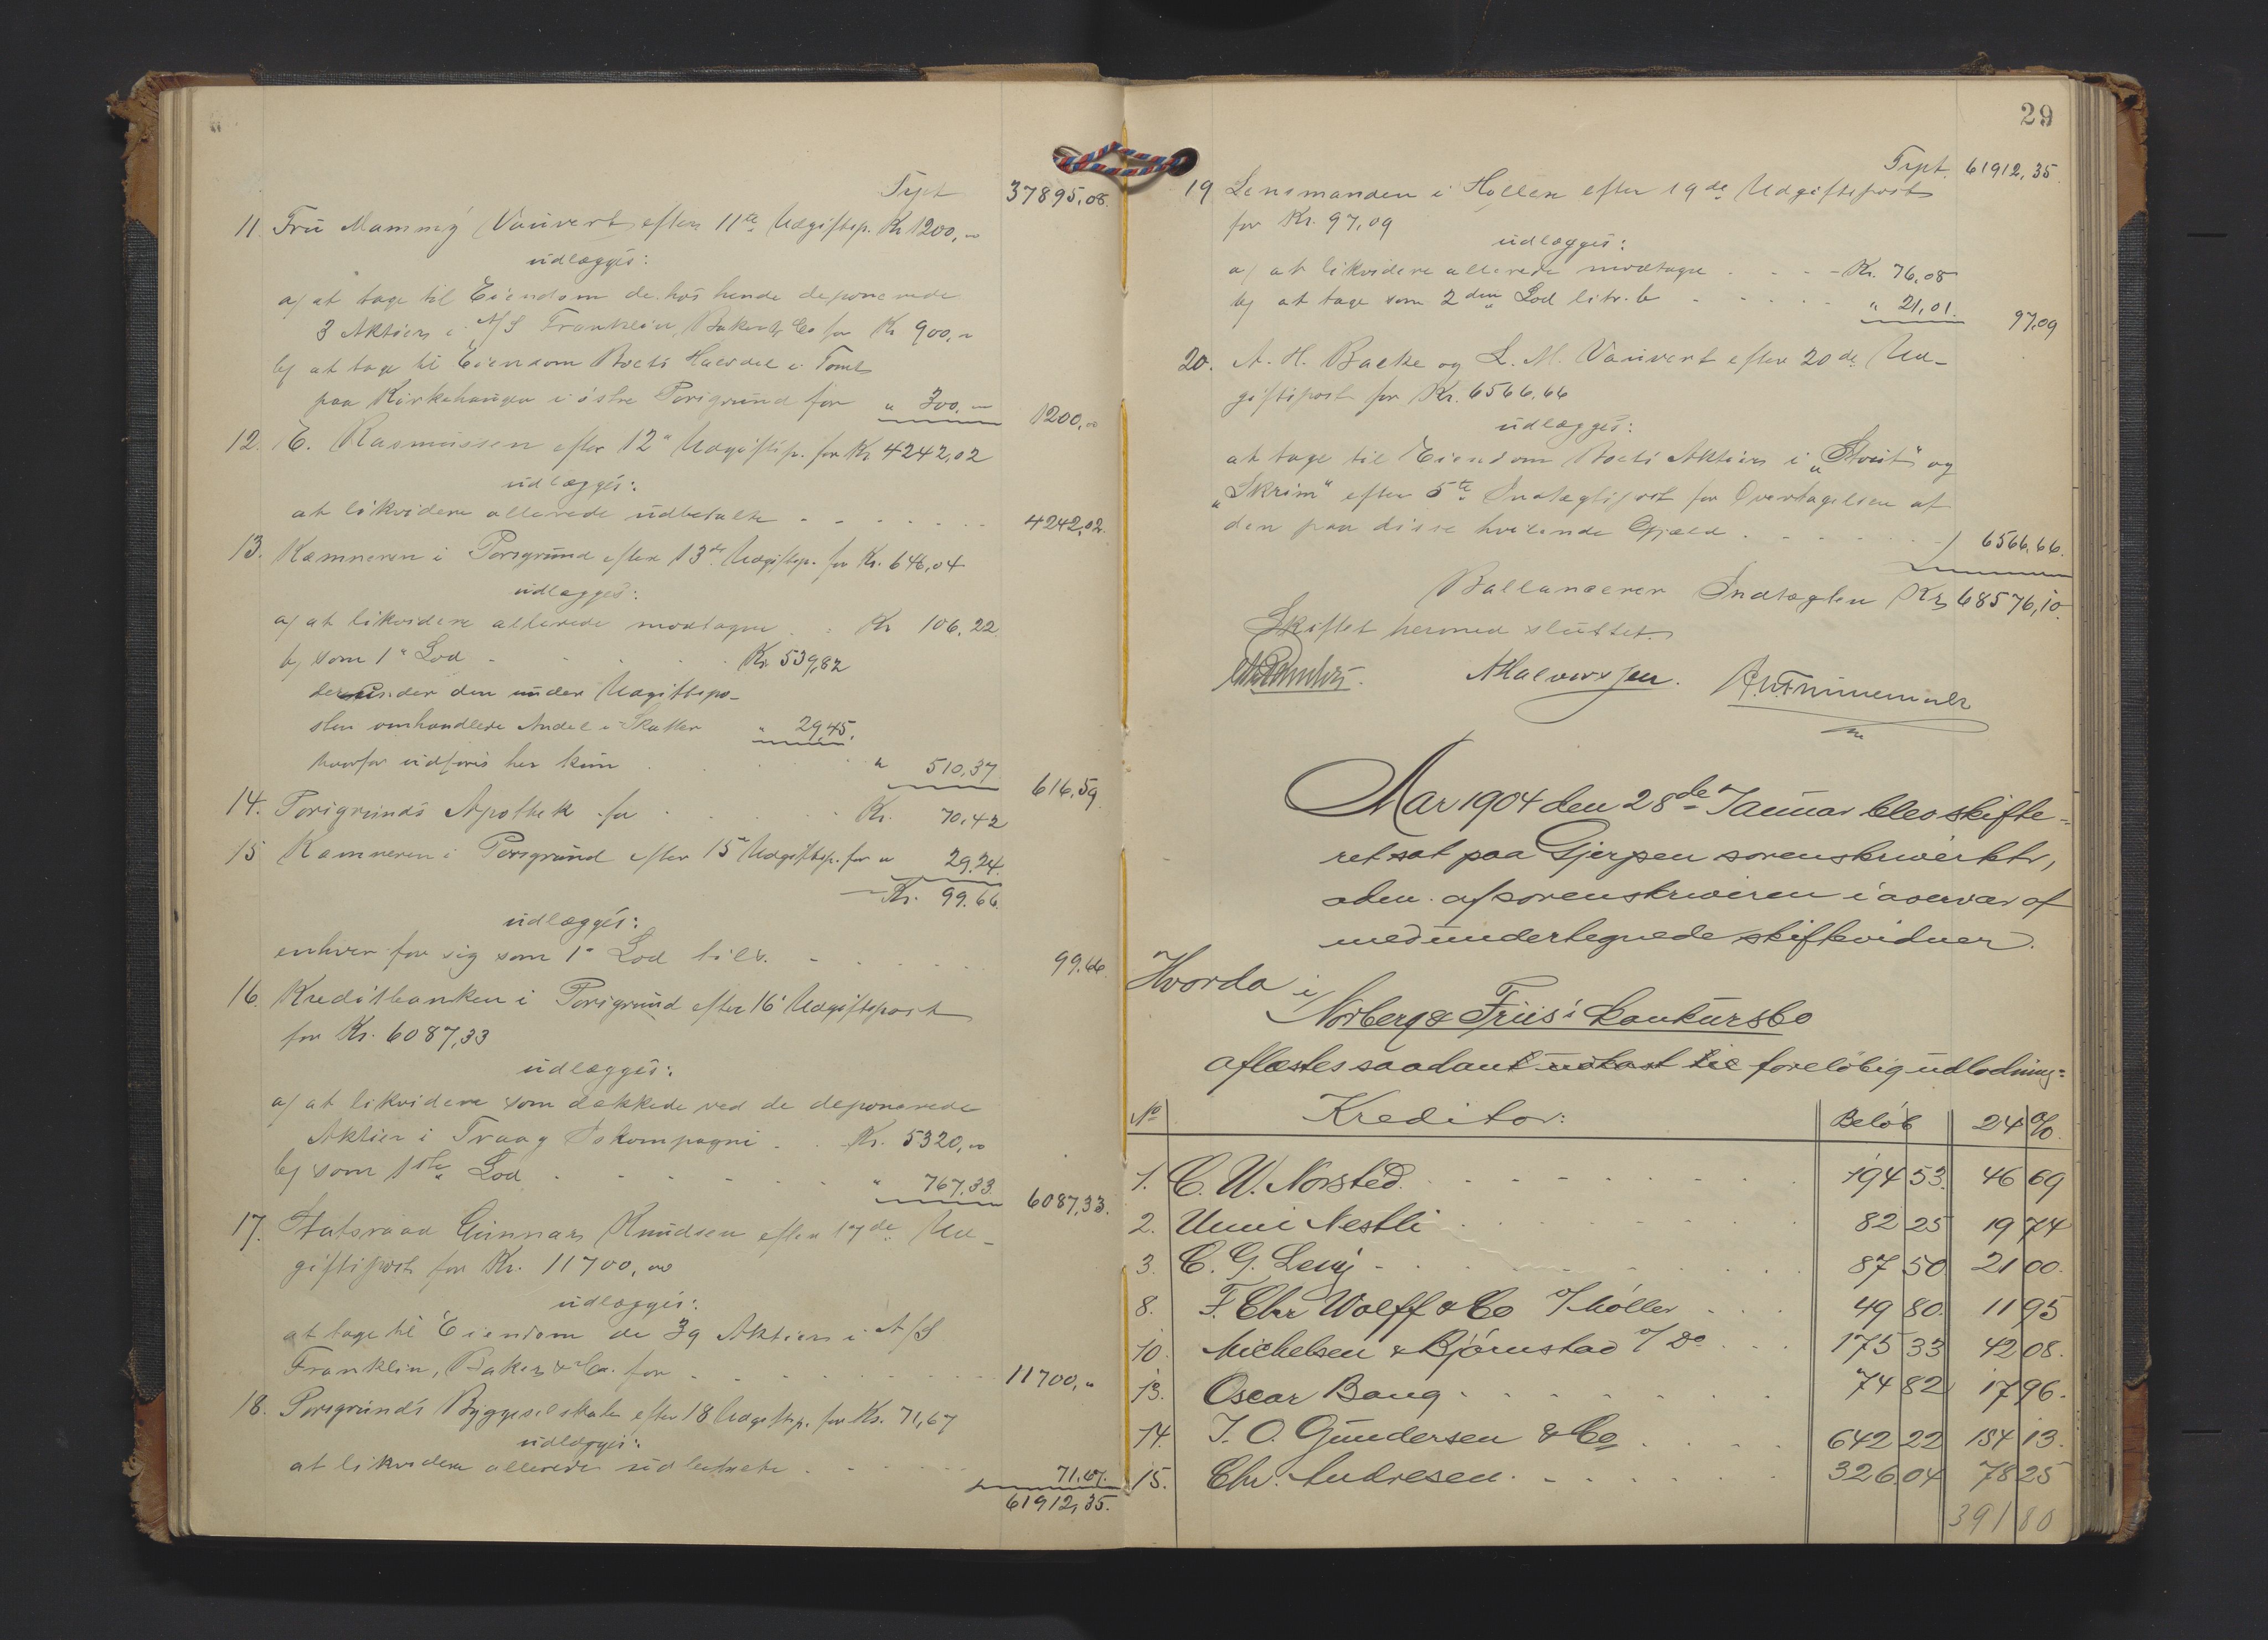 Trpt 37895,08.
11. Fru Mammy Vauvert efter 11te Udgiftsp. Kr 1200,00
udlægges:
a/ at tage til Eiendom de hos hende deponerede
3 Aktier i A/S Franklin, Baker & Co for Kr 900,00
b/ at tage til Eiendom Boets Halvdel i Tomt
paa Kirkehaugen i østre Porsgrund for " 300,00 1200,00
12. E. Rasmussen efter 12te Udgiftsp. for Kr. 4242,02
udlægges:
at likvidere allerede udbetalte 4242,02.
13. Kæmneren i Porsgrund efter 13de Udgiftsp. for Kr. 646,04
udlægges:
a/ at likvidere allerede modtagne Kr 106,22
b/ som 1ste Lod Kr. 539,82
herunder den under Udgiftspo-
sten omhandlede Andel i Skatter " 29,45.
hvorfor udføres her kun " 510,37 616,59.
14. Porsgrunds Apothek for Kr. 70,42
15 Kæmneren i Porsgrund efter 15de Udgiftsp. for " 29,24.
Kr. 99.66.
udlægges:
enhver for sig som 1ste Lod tils. 99.66.
16. Kreditbanken i Porsgrund efter 16de Udgiftspost
for Kr. 6087,33
udlægges:
a/ at likvidere som dækkede ved de deponerede
Aktier i Traag Iskompagni Kr. 5320,00
b/ som 1ste Lod " 767,33 6087,33.
17. Statsraad Gunnar Knudsen efter 17de Ud-
giftspost for Kr. 11700,00
udlægges:
at tage til Eiendom de 39 Aktier i A/S
Franklin, Baker & Co. for 11700,00
18. Porsgrunds Byggeselskab efter 18 Udgiftsp. for Kr. 71,67
udlægges:
at likvidere allerede udbetalte 71,67.
61912,35.
29
Trpt. 61912,35.
19 Lensmanden i Hollen efter 19de Udgiftspost
for Kr. 97,09
udlægges:
a/ at likvidere allerede modtagne Kr. 76,08
b/ at tage som 2den Lod litr. b " 21,01. 97,09
20. A. H. Backe og L. M. Vauvert efter 20de Ud-
giftspost for Kr. 6566,66
udlægges:
at tage til Eiendom Boets Aktier i "Stoit" og
"Skrim" efter 5te Indtægtspost for Overtagelsen af
den paa disse hvilende Gjæld 6566,66.
Ballancerer Indtægten Kr. 68576,10.
Skiftet hermed sluttet.
AHalvorssen.
Aar 1904 den 28de Januar blev skifte-
ret sat paa Gjerpen sorenskriverktr,
adm. af sorenskriveren i overvær af
medundertegnede skiftevidner.
Hvorda i
Norberg & Friis' konkursbo
aflæstes saadant udkast til foreløbig udlodning:
No Kreditor: Beløb 24 %
1. C. W. Norsted. 194 53. 46 69
2. Unni Nestli 82 25 19 74
3. C. G. Levy 87 50 21 00.
8. F. Chr Wolff & Co v/ Møller 49 80. 11 95
10. Michelsen & Bjørnstad v/ Do 175 33 42 08.
13. Oscar Bang 74 82 17 96.
14. J. O. Gundersen & Co 642 22 154 13.
15. Chr. Andresen. 326 04 78 25
391 80